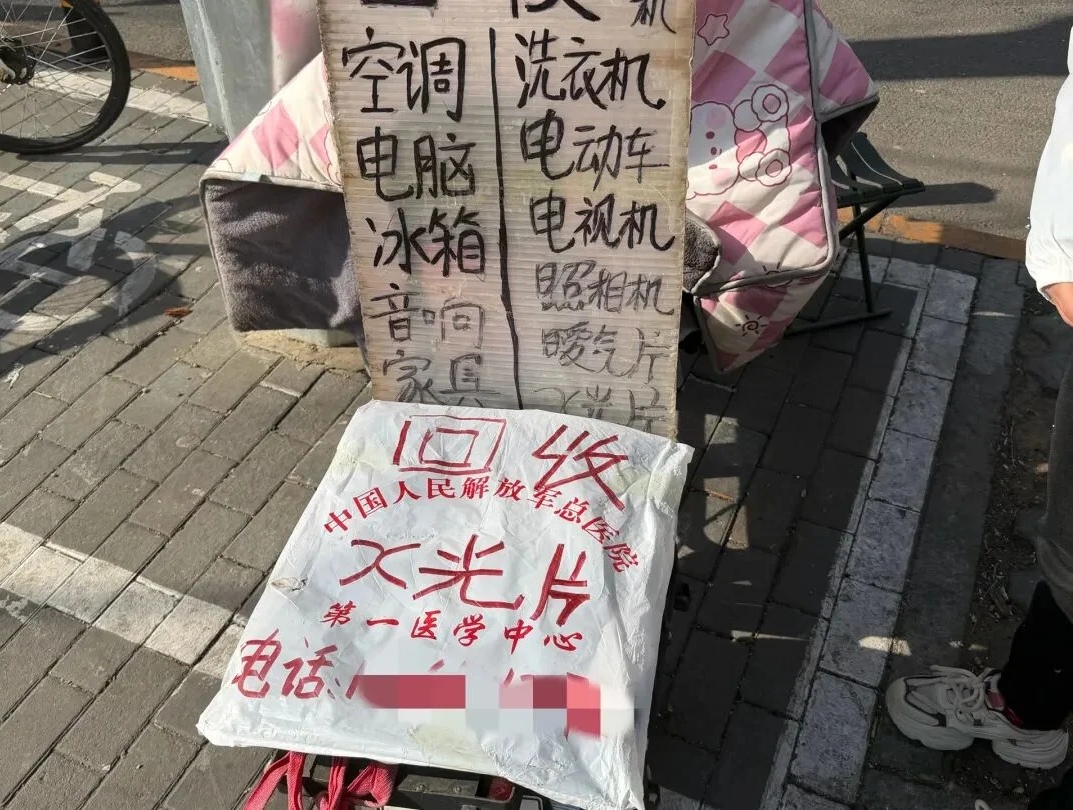 机
空调
电脑
冰箱
音响
家具
洗衣机
电动车
电视机
照相机
暖气片
光片
回收
中国人民解放军总医院
X光片
第一医学中心
电话: